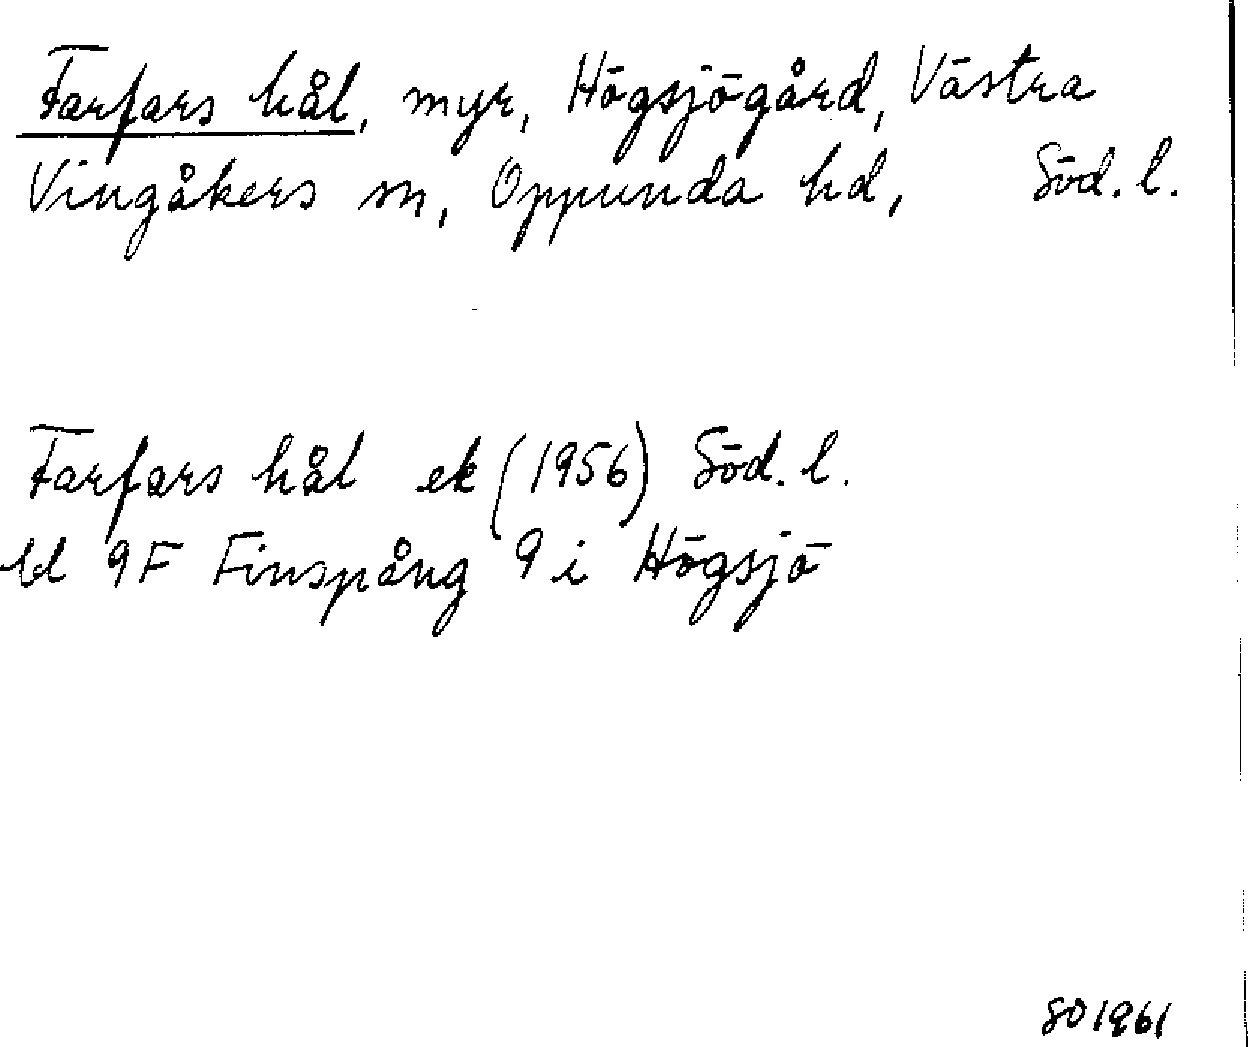 Farfars hål, myr, Högsjögård, Västra
Vingåkers sn, Oppunda hd, Söd. l.
Farfars hål ek (1956) Söd. l.
bl 9F Finspång 9 i Högsjö
SO 1961